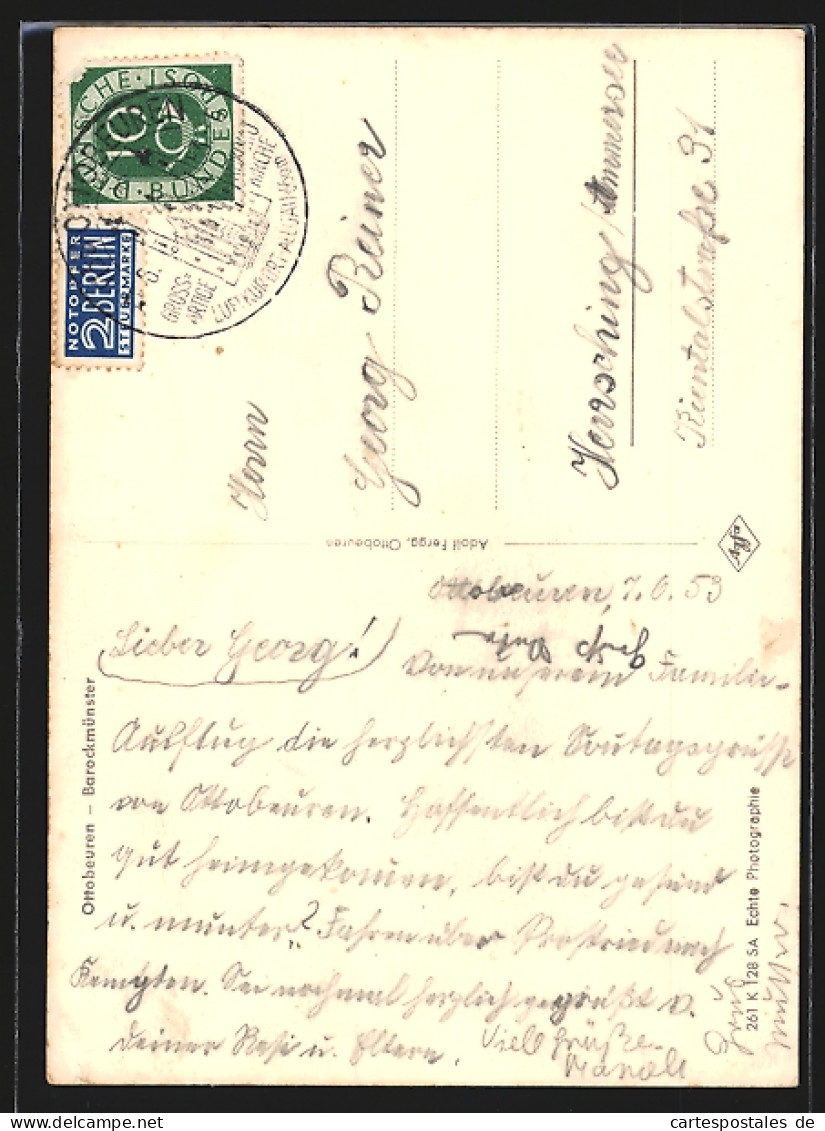 Ottobeuren, 7.6.53
Lieber Georg!
Von unserem Familien-
Ausflug die herzlichsten Sontagsgrüsse
von Ottobeuren. Hoffentlich bist du
gut heimgekommen, bist du gesund
u. munter? Fahren über nach
Kempten. Sei nochmal herzlich gegrüßt v.
deiner Resi u. Eltern.
Viele Grüße
Gruß
Mutter.
Ottobeuren – Barockmünster
261 K 128 SA Echte Photographie
Adolf Fergg, Ottobeuren
DEUTSCHE BUNDESPOST
10
NOTOPFER
2 BERLIN
STEUERMARKE
OTTOBEUREN
GROSS-
ARTIGE
KIRCHE
LUFTKURORT
Herrn
Georg Reiner
Herrsching/Ammersee
Rientalstraße 31
cartespostales de
www.cartespostales.de